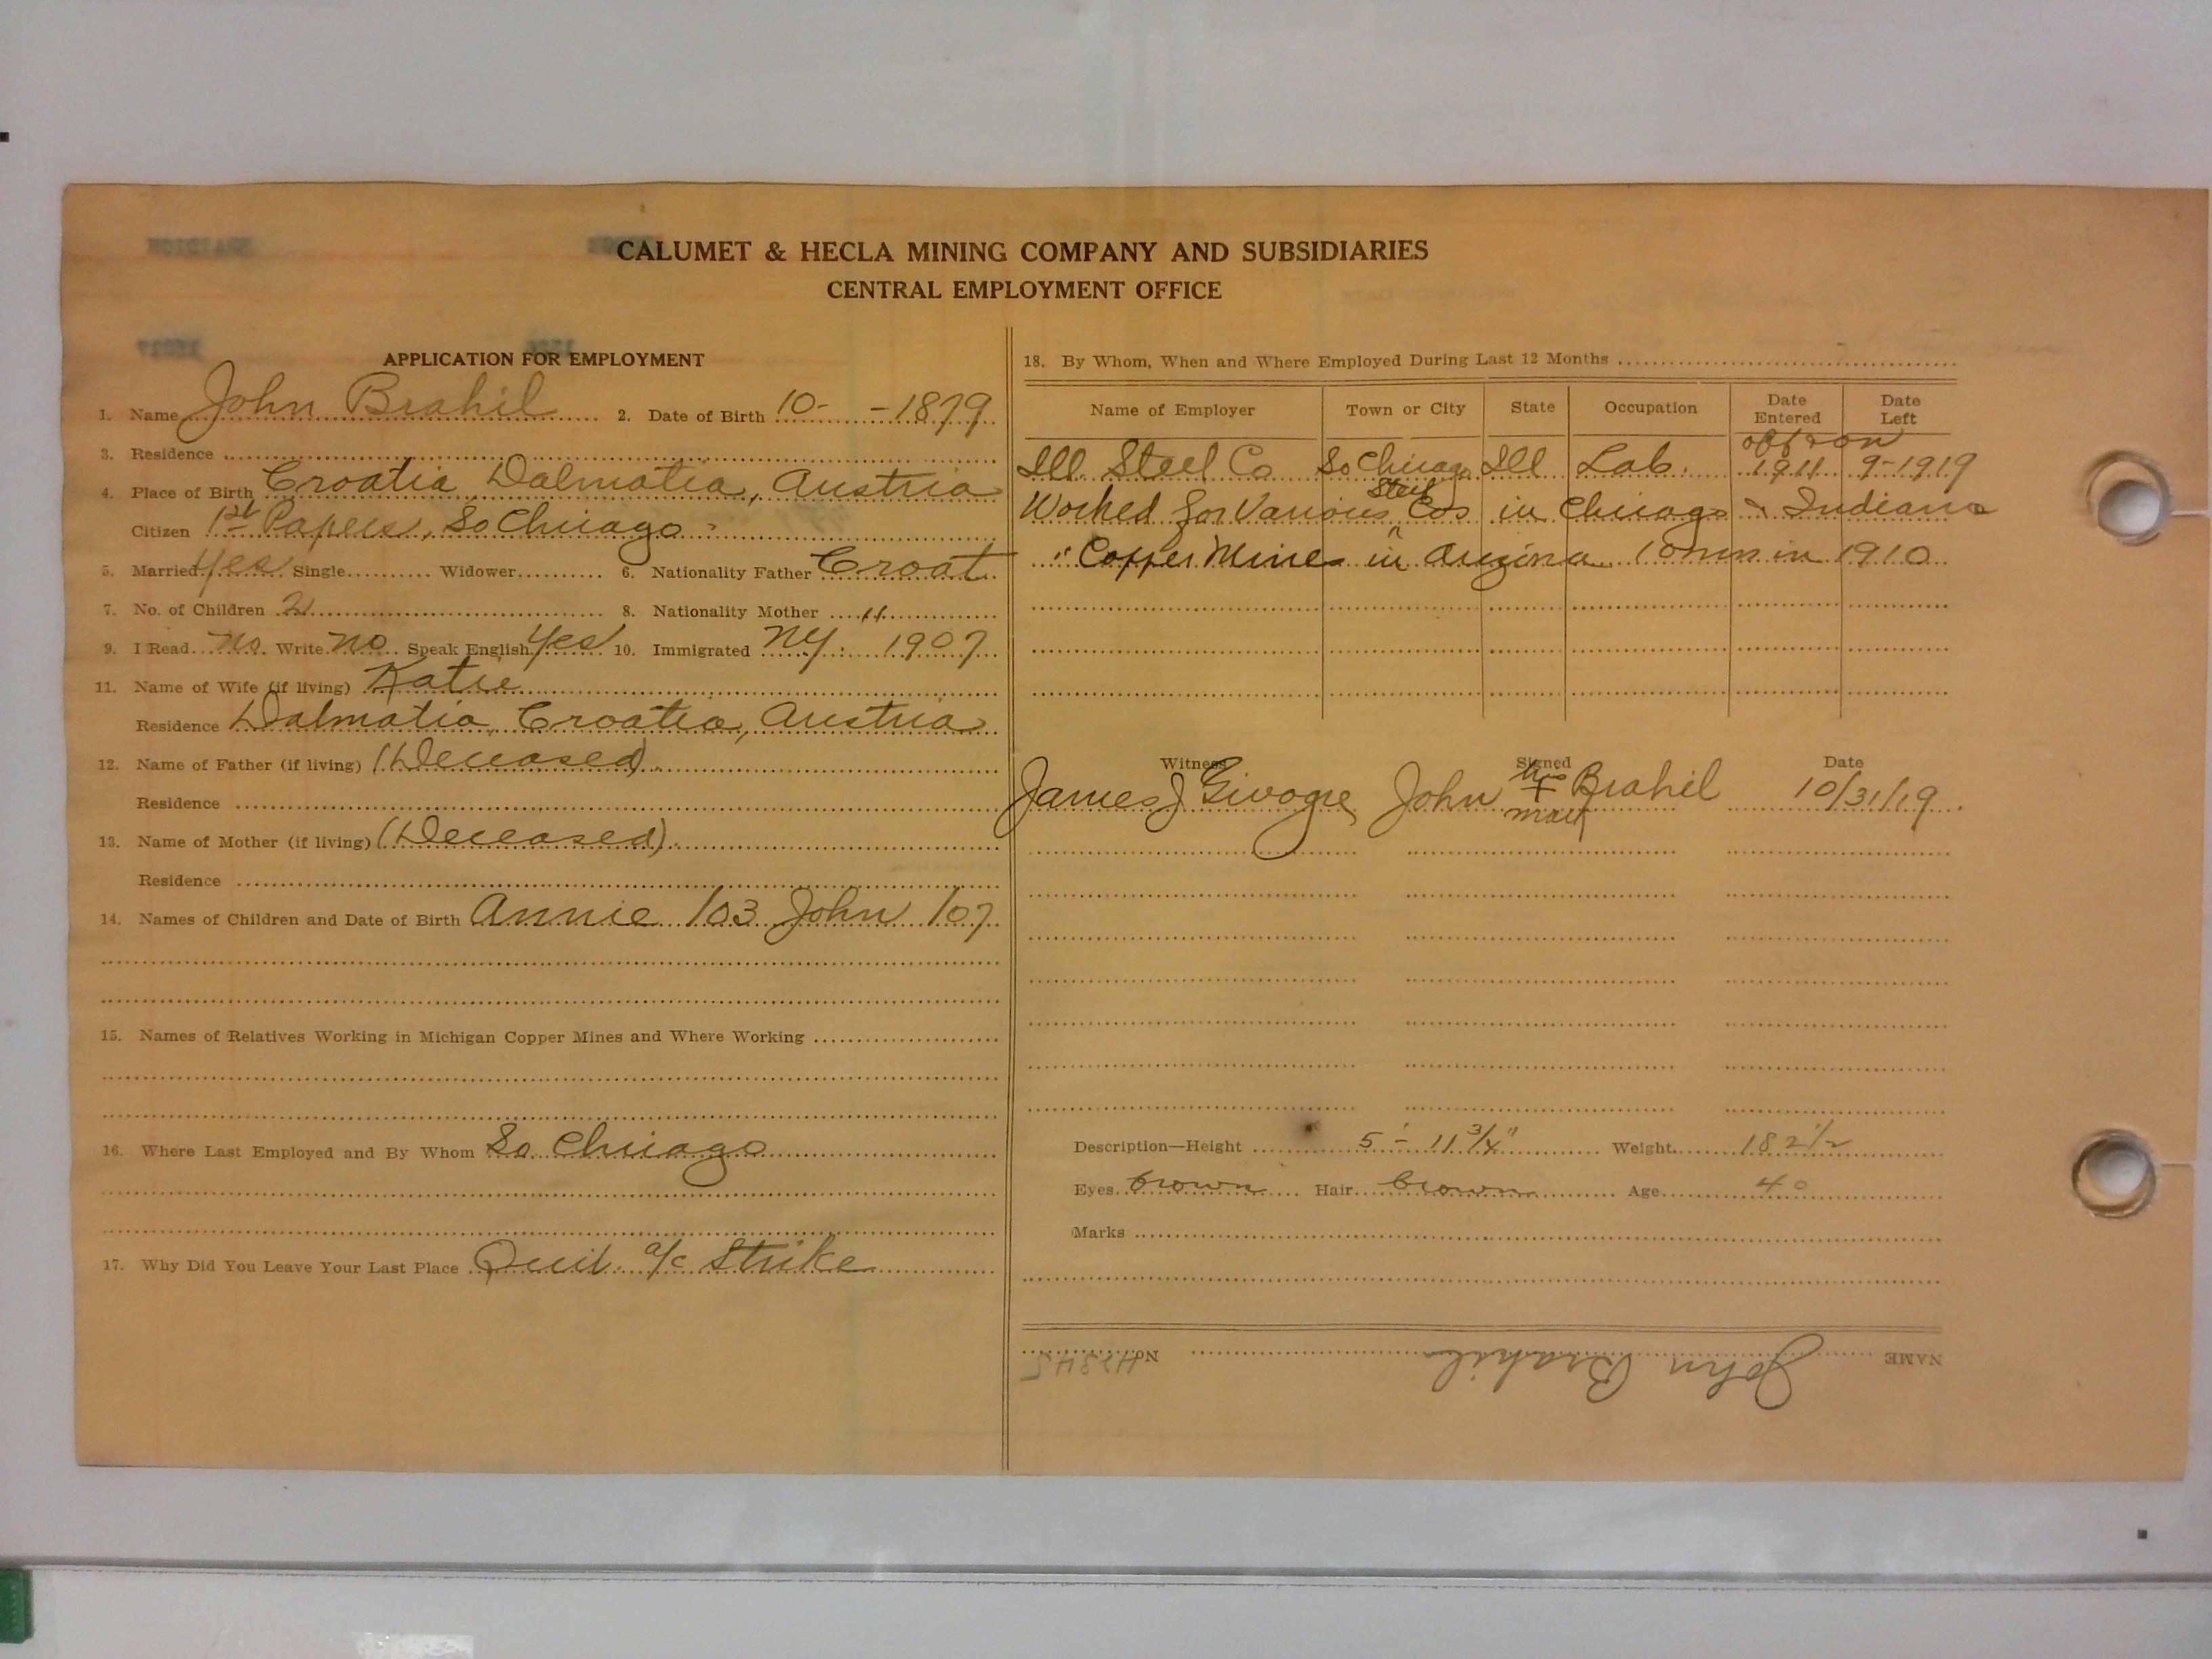 CALUMET & HECLA MINING COMPANY AND SUBSIDIARIES
CENTRAL EMPLOYMENT OFFICE
APPLICATION FOR EMPLOYMENT
1. Name John Brahil 2. Date of Birth 10- -1879
3. Residence
4. Place of Birth Croatia Dalmatia, Austria
Citizen 1st Papers, So Chicago
5. Married Yes Single Widower 6. Nationality Father Croat
7. No. of Children 2 8. Nationality Mother "
9. I Read No Write no Speak English Yes 10. Immigrated NY. 1907
11. Name of Wife (if living) Katie
Residence Dalmatia, Croatia, Austria
12. Name of Father (if living) (Deceased)
Residence
13. Name of Mother (if living) (Deceased)
Residence
14. Names of Children and Date of Birth Annie /03 John /07
15. Names of Relatives Working in Michigan Copper Mines and Where Working
16. Where Last Employed and By Whom So. Chicago
17. Why Did You Leave Your Last Place Quit a/c Strike
18. By Whom, When and Where Employed During Last 12 Months
Name of Employer Town or City State Occupation Date Entered Date Left
off & on
Ill. Steel Co So Chicago Ill Lab. 1911 9-1919
Worked for Various Steel Cos in Chicago & Indiana
" Copper Mines in Arizona 10 mn in 1910
Witness Signed Date
James J John his + mark Brahil 10/31/19
Description—Height 5'-11 3/4" Weight 182 1/2
Eyes brown Hair brown Age 40
Marks
NAME John Brahil No.